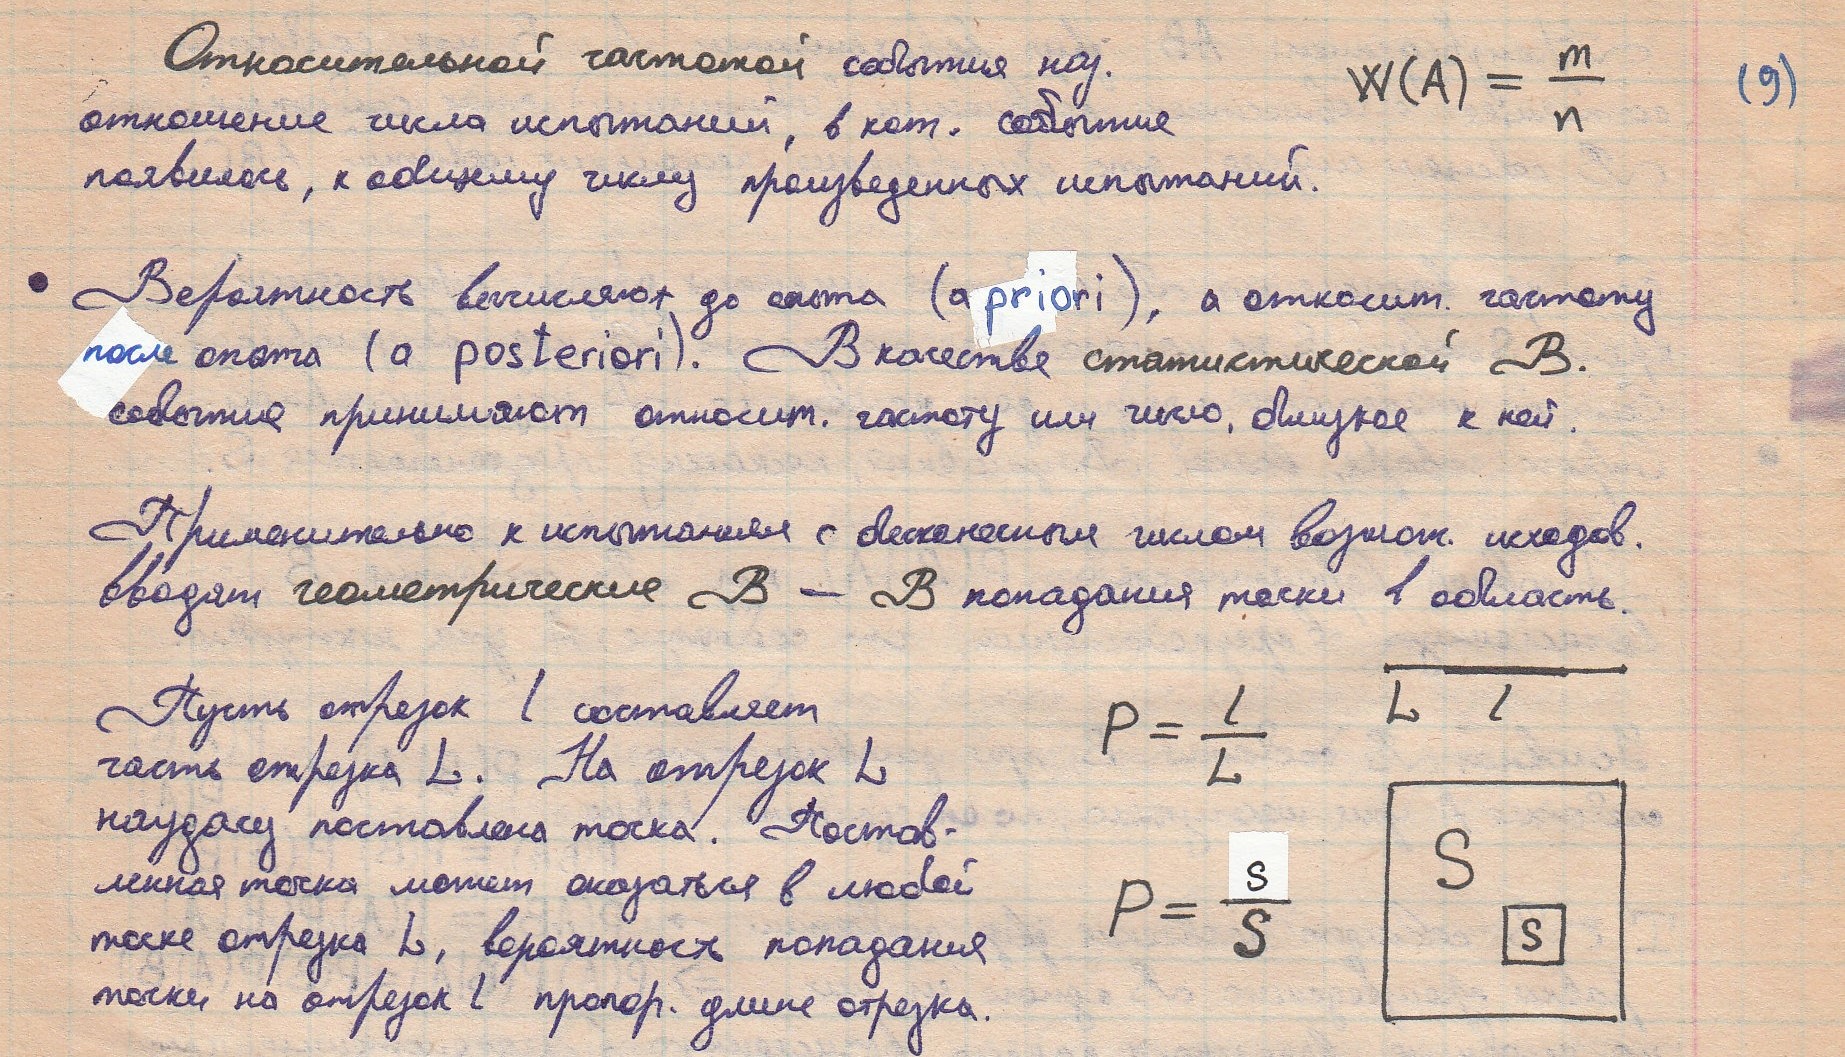 Относительной частотой события наз. W(A) = m/n (9)
отношение числа испытаний, в кот. событие
появилось, к общему числу произведенных испытаний.
• Вероятность вычисляют до опыта (a priori), а относит. частоту
после опыта (a posteriori). В качестве статистической В.
события принимают относит. частоту или число, близкое к ней.
Применительно к испытаниям с бесконечным числом возмож. исходов.
вводят геометрические В — В попадания точки в область.
Пусть отрезок l составляет
часть отрезка L. На отрезок L
наудачу поставлена точка. Постав-
ленная точка может оказаться в любой
точке отрезка L, вероятность попадания
точки на отрезок l пропор. длине отрезка.
P = l/L
L l
P = s/S
S
s